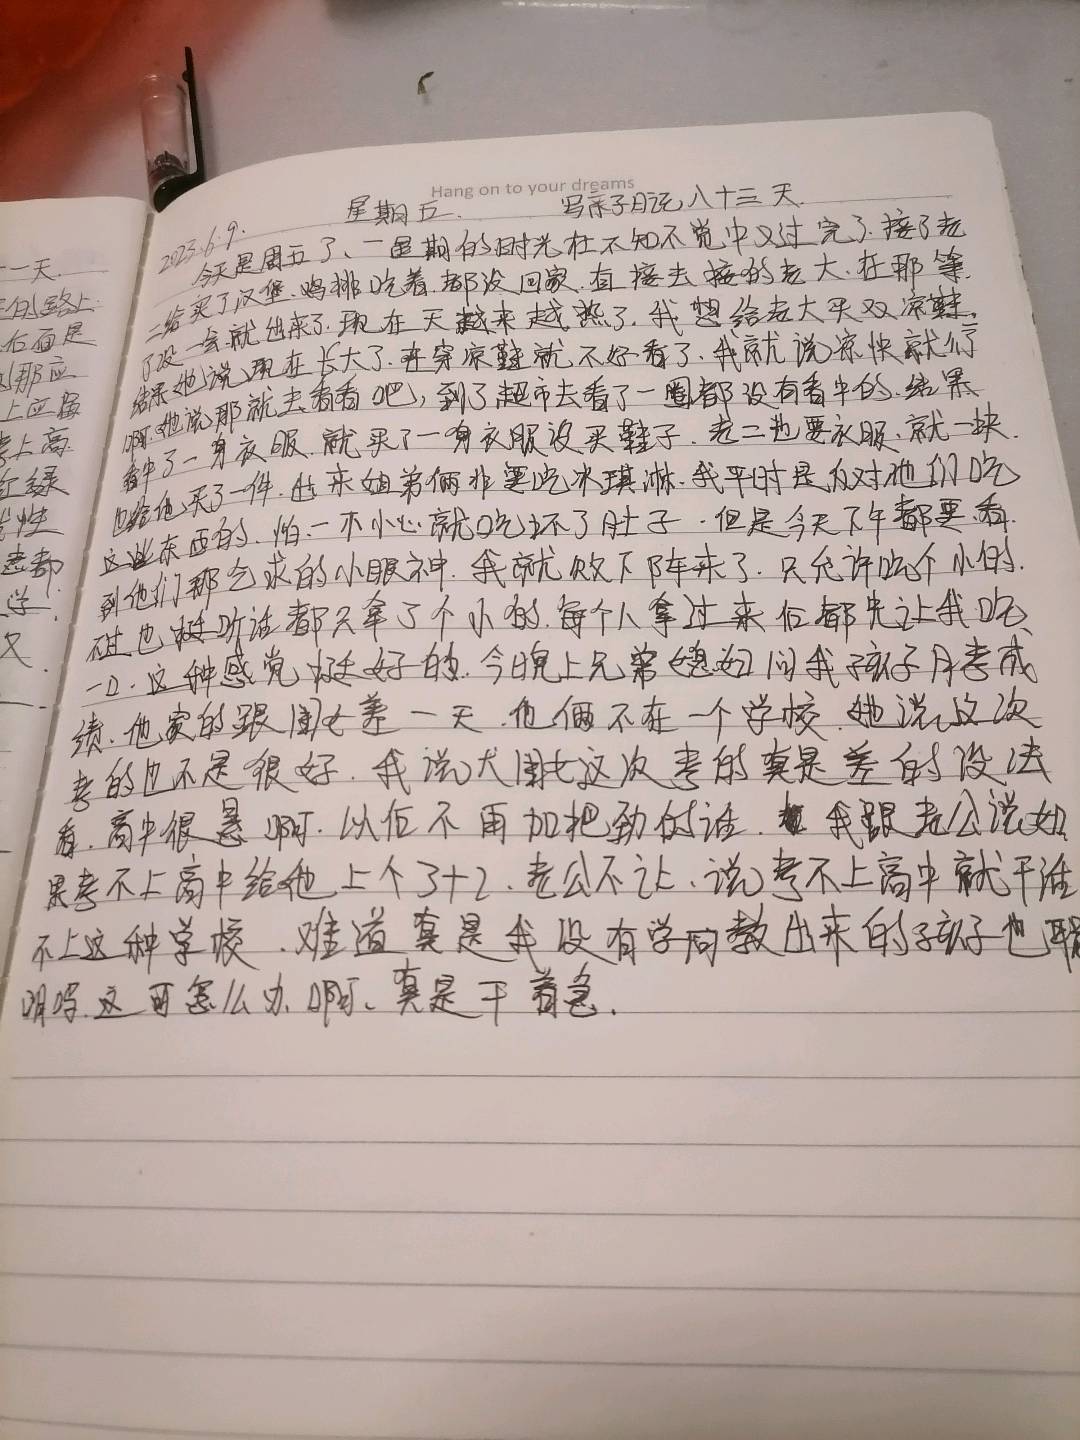 Hang on to your dreams
2023.6.9. 星期五. 写亲子日记八十三天.
今天是周五了、一星期的时光在不知不觉中又过完了.接了老
二给买了汉堡.鸡排吃着.都没回家.直接去接的老大.在那等
了没一会就出来了.现在天越来越热了.我想给老大买双凉鞋.
结果她说现在长大了.再穿凉鞋就不好看了.我就说凉快就行
啊.她说那就去看看吧,到了超市去看了一圈都没有看中的.结果
看中了一身衣服.就买了一身衣服没买鞋子.老二也要衣服.就一块.
也给他买了一件.出来姐弟俩非要吃冰琪淋.我平时是反对他们吃
这些东西的.怕一不小心就吃坏了肚子.但是今天下午都要.看
到他们那乞求的小眼神.我就败下阵来了.只允许吃个小的.
不过也挺听话都只拿了个小的.每个人拿过来后都先让我吃
一口.这种感觉挺好的.今晚上兄弟媳妇问我孩子月考成
绩.他家的跟闺女差一天.他俩不在一个学校.她说这次
考的也不是很好.我说大闺女这次考的真是差的没法
看.高中很悬啊.以后不再加把劲的话.我跟老公说如
果考不上高中给她上个3+2.老公不让.说考不上高中就干活
不上这种学校.难道真是我没有学问教出来的孩子也聪
明吗.这可怎么办啊、真是干着急.
一天.
上
右面是
那应
上应届
考上高
性
学.
又.